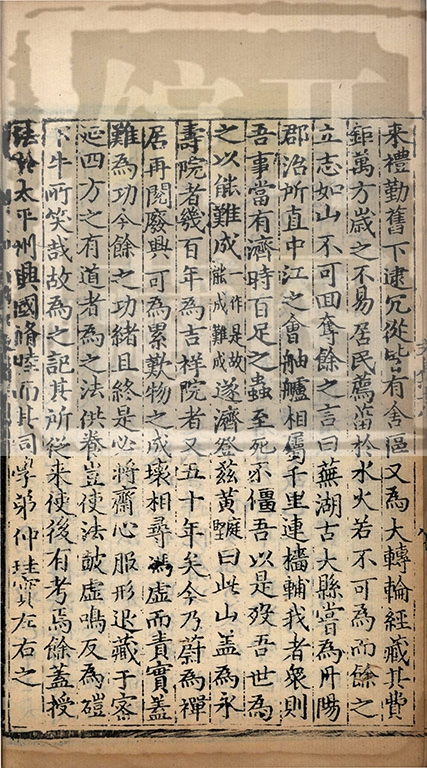 來禮勤舊下逮冗從皆有舍區又為大轉輪經藏其費
鉅萬方歲之不易居民薦菑於水火若不可為而餘之
立志如山不可回奪餘之言曰蕪湖古大縣嘗為丹陽
郡治所直中江之會舳艫相屬千里連檣輔我者衆則
吾事當有濟時百足之蟲至死不僵吾以是歿吾世為
之以能難成一作是故能成難成遂濟登茲黃庭堅曰此山蓋為永
壽院者幾百年為吉祥院者又五十年矣今乃蔚為禪
居再閱廢興可為累歎物之成壞相尋馮虛而責實蓋
難為功今餘之功緒且終是心將齋心服形退藏于密
必四方之有道者為之法供養豈使法鼓虛鳴反為磑
下牛所笑哉故為之記其所從來使後有考焉餘蓋授
法於太平州興國脩睦而其同學弟仲珪實左右之